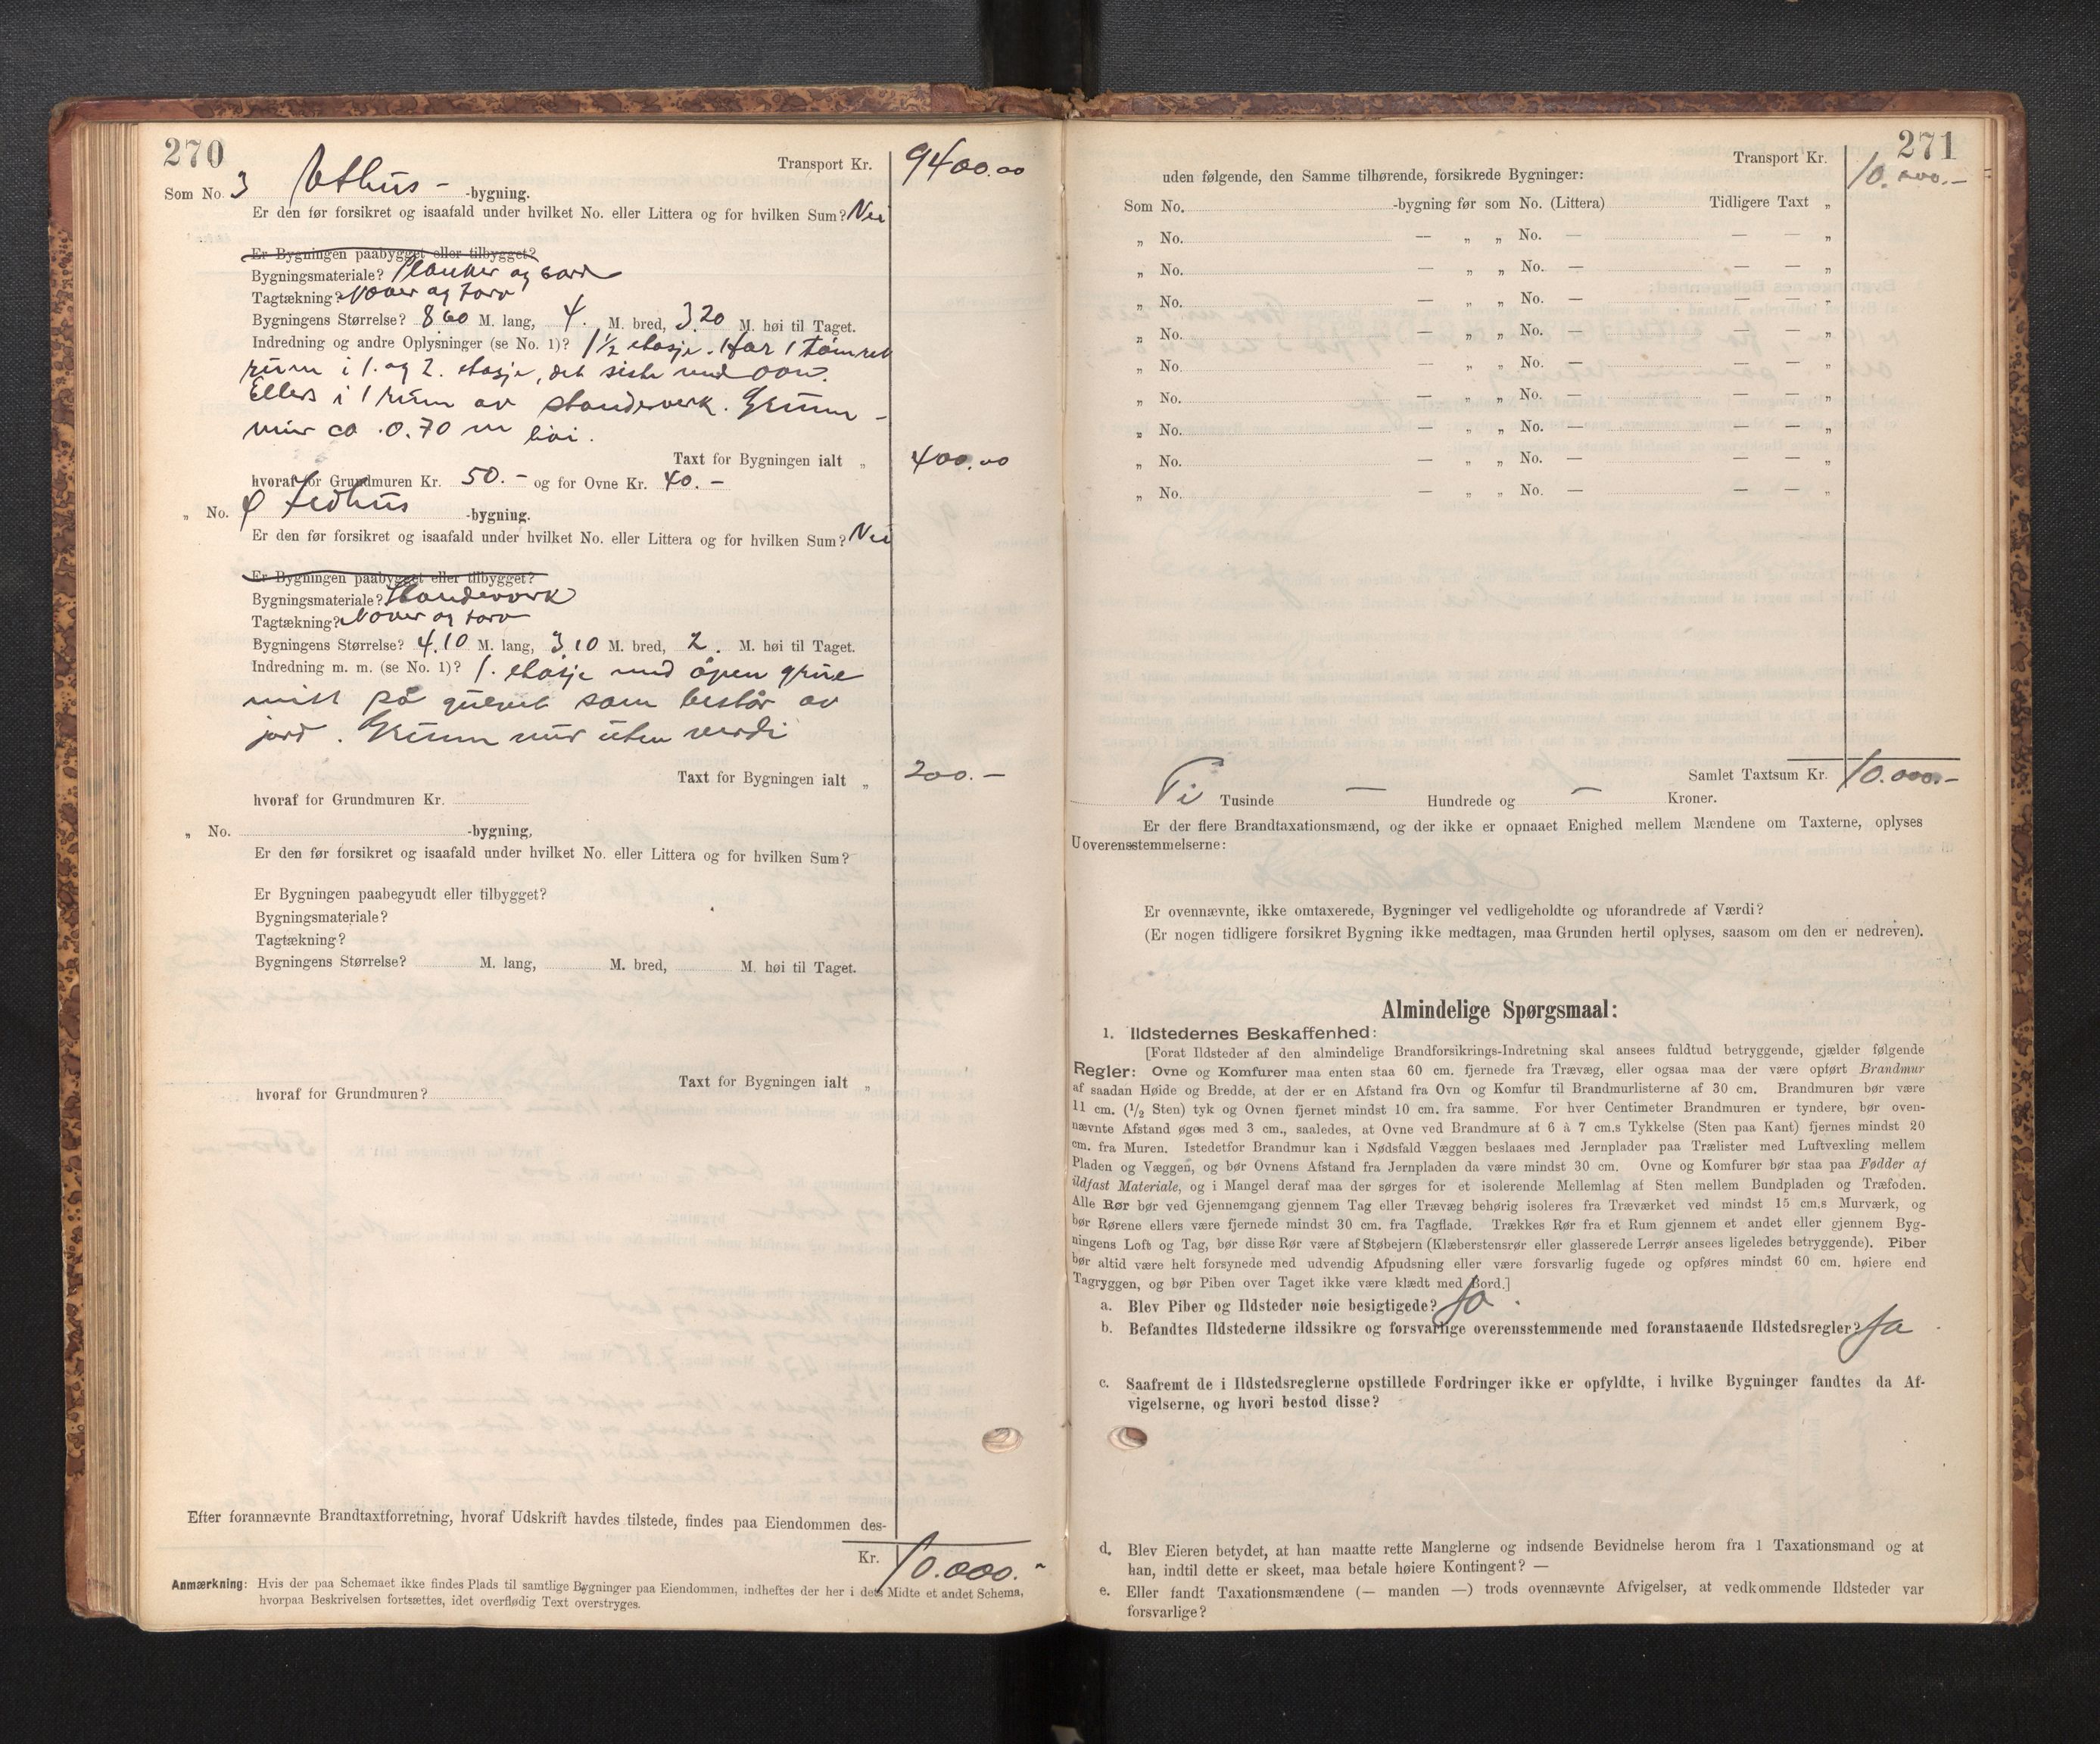 270
Transport Kr. 9400.00
Som No. 3 Uthus- -bygning.
Er den før forsikret og isaafald under hvilket No. eller Littera og for hvilken Sum? Nei
Er Bygningen paabygget eller tilbygget?
Bygningsmateriale? Planker og bord
Tagtækning? Næver og torv
Bygningens Størrelse? 8,60 M. lang, 4. M. bred, 3,20 M. høi til Taget.
Indredning og andre Oplysninger (se No. 1)? 1 1/2 etasje. Har 1 tømret
rum i 1. og 2. etasje, det siste med ovn.
Ellers i 1 rum av standerverk. Grunn-
mur ca. 0.70 m høi.
Taxt for Bygningen ialt „ 400.00
hvoraf for Grundmuren Kr. 50.- og for Ovne Kr. 40.-
„ No. 4 Ildhus -bygning.
Er den før forsikret og isaafald under hvilket No. eller Littera og for hvilken Sum? Nei
Er Bygningen paabygget eller tilbygget?
Bygningsmateriale? Standerverk
Tagtækning? Næver og torv
Bygningens Størrelse? 4,10 M. lang, 3,10 M. bred, 2. M. høi til Taget.
Indredning m. m. (se No. 1)? 1. etasje med åpen grue
midt på gulvet som består av
jord. Grunnmur uten verdi
Taxt for Bygningen ialt „ 200.-
hvoraf for Grundmuren Kr.
„ No. -bygning,
Er den før forsikret og isaafald under hvilket No. eller Littera og for hvilken Sum?
Er Bygningen paabegyndt eller tilbygget?
Bygningsmateriale?
Tagtækning?
Bygningens Størrelse? M. lang, M. bred, M. høi til Taget.
Taxt for Bygningen ialt „
hvoraf for Grundmuren?
Efter forannævnte Brandtaxtforretning, hvoraf Udskrift havdes tilstede, findes paa Eiendommen des-
Kr. 10.000.-
Anmærkning: Hvis der paa Schemaet ikke findes Plads til samtlige Bygninger paa Eiendommen, indheftes der her i dets Midte et andet Schema,
hvorpaa Beskrivelsen fortsættes, idet overflødig Text overstryges.
271
Transport Kr. 10.000.-
uden følgende, den Samme tilhørende, forsikrede Bygninger:
Som No. -bygning før som No. (Littera) Tidligere Taxt „
„ No. — „ „ No. — — — „
„ No. — „ „ No. — — — „
„ No. — „ „ No. — — — „
„ No. — „ „ No. — — — „
„ No. — „ „ No. — — — „
„ No. — „ „ No. — — — „
„ No. — „ „ No. — — — „
„ No. — „ „ No. — — — „
„ No. — „ „ No. — — — „
Samlet Taxtsum Kr. 10.000.-
Ti Tusinde — Hundrede og — Kroner.
Er der flere Brandtaxationsmænd, og der ikke er opnaaet Enighed mellem Mændene om Taxterne, oplyses
Uoverensstemmelserne:
Er ovennævnte, ikke omtaxerede, Bygninger vel vedligeholdte og uforandrede af Værdi?
(Er nogen tidligere forsikret Bygning ikke medtagen, maa Grunden hertil oplyses, saasom om den er nedreven).
Almindelige Spørgsmaal:
1. Ildstedernes Beskaffenhed:
[Forat Ildsteder af den almindelige Brandforsikrings-Indretning skal ansees fuldtud betryggende, gjælder følgende
Regler: Ovne og Komfurer maa enten staa 60 cm. fjernede fra Trævæg, eller ogsaa maa der være opført Brandmur
af saadan Høide og Bredde, at der er en Afstand fra Ovn og Komfur til Brandmurlisterne af 30 cm. Brandmuren bør være
11 cm. (1/2 Sten) tyk og Ovnen fjernet mindst 10 cm. fra samme. For hver Centimeter Brandmuren er tyndere, bør oven-
nævnte Afstand øges med 3 cm., saaledes, at Ovne ved Brandmure af 6 à 7 cm.s Tykkelse (Sten paa Kant) fjernes mindst 20
cm. fra Muren. Istedetfor Brandmur kan i Nødsfald Væggen beslaaes med Jernplader paa Trælister med Luftvexling mellem
Pladen og Væggen, og bør Ovnens Afstand fra Jernpladen da være mindst 30 cm. Ovne og Komfurer bør staa paa Fødder af
ildfast Materiale, og i Mangel deraf maa der sørges for et isolerende Mellemlag af Sten mellem Bundpladen og Træfoden.
Alle Rør bør ved Gjennemgang gjennem Tag eller Trævæg behørig isoleres fra Træværket ved mindst 15 cm.s Murværk, og
bør Rørene ellers være fjernede mindst 30 cm. fra Tagflade. Trækkes Rør fra et Rum gjennem et andet eller gjennem Byg-
ningens Loft og Tag, bør disse Rør være af Støbejern (Klæberstensrør eller glasserede Lerrør ansees ligeledes betryggende). Piber
bør altid være helt forsynede med udvendig Afpudsning eller være forsvarlig fugede og opføres mindst 60 cm. høiere end
Tagryggen, og bør Piben over Taget ikke være klædt med Bord.]
a. Blev Piber og Ildsteder nøie besigtigede? Ja.
b. Befandtes Ildstederne ildssikre og forsvarlige overensstemmende med foranstaaende Ildstedsregler? Ja
c. Saafremt de i Ildstedsreglerne opstillede Fordringer ikke er opfyldte, i hvilke Bygninger fandtes da Af-
vigelserne, og hvori bestod disse?
d. Blev Eieren betydet, at han maatte rette Manglerne og indsende Bevidnelse herom fra 1 Taxationsmand og at
han, indtil dette er skeet, maa betale høiere Kontingent? —
e. Eller fandt Taxationsmændene (— manden —) trods ovennævnte Afvigelser, at vedkommende Ildsteder var
forsvarlige?